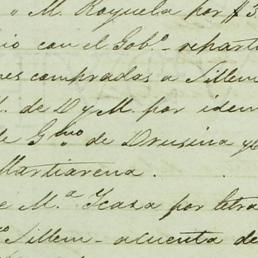 " M. Royuela por $3
io con el Gobº. reparti
es compradas a Sillem
. de D y M. por idem
de Gmo de Drusina y
Martiarena.
e M.ª Icaza por letra
º Sillem - a cuenta de